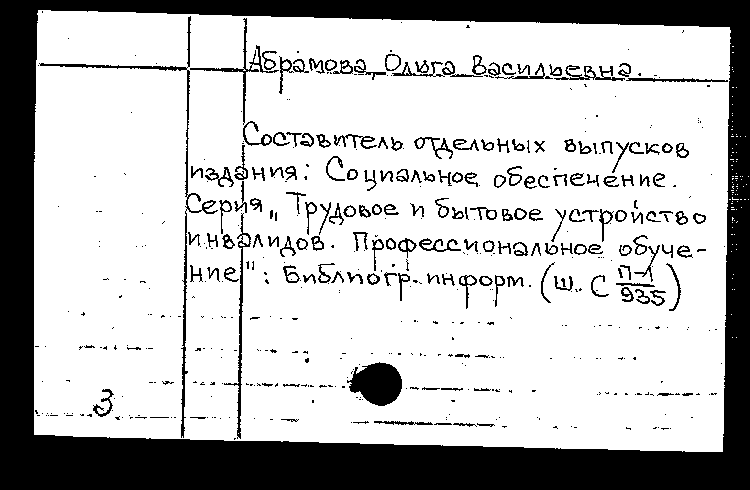 Абрамова, Ольга Васильевна.
Составитель отдельных выпусков
издания: Социальное обеспечение.
Серия „Трудовое и бытовое устройство
инвалидов. Профессиональное обуче-
ние": Библиогр. информ. (Ш. С П-1/935)
3